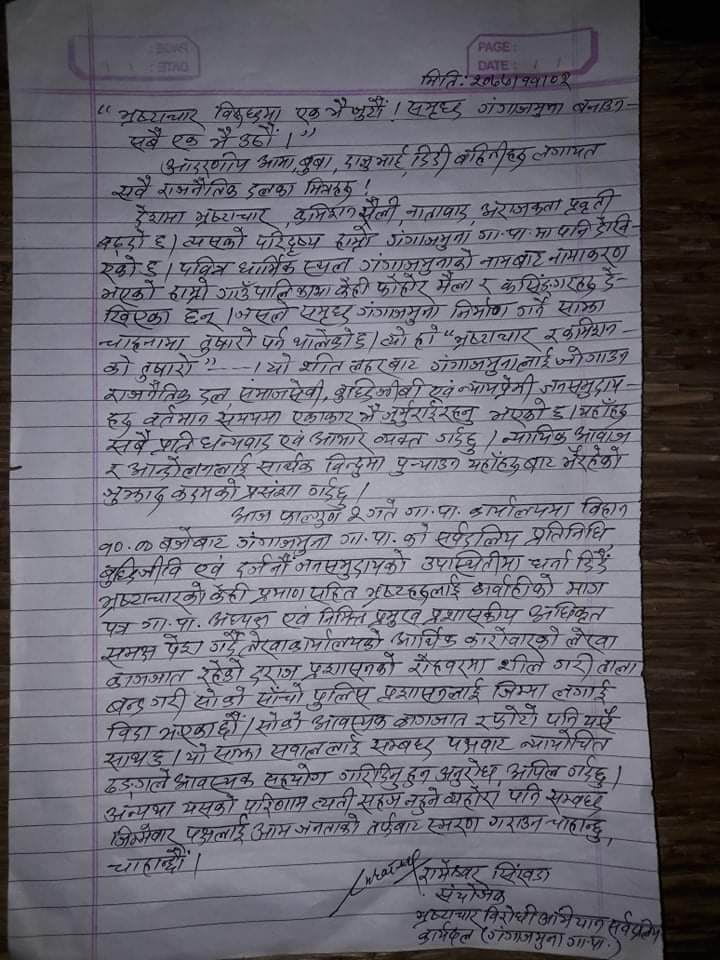 PAGE:
DATE:
मिति: २०७५।११।०२
"भ्रष्टाचार विरूद्धमा एक भै जुटौं ! समृध्द गंगाजमुना बनाउन
सबै एक भै उठौं ।"
आदरणीय आमा, बुबा, दाजुभाई, दिदी बहिनीहरू लगायत
सबै राजनैतिक दलका मित्रहरू !
देशमा भ्रष्टाचार, कमिशन शैली, नातावाद, अराजकता प्रवृती
बढ्दो छ । त्यसको परिदृष्य हाम्रो गंगाजमुना गा.पा. मा पनि देखि-
एको छ । पवित्र धार्मिक स्थल गंगाजमुनाको नामबाट नामाकरण
भएको हाम्रो गाउँपालिकामा केही फोहोर मैला र कसिंङ्गरहरू दे-
खिएका छन् । जसले समृध्द गंगाजमुना निर्माण गर्ने साझा
चाहनामा तुषारो पर्न थालेको छ । त्यो हो "भ्रष्टाचार र कमिशन-
को तुषारो" ---- । यो शित लहरबाट गंगाजमुनालाई जोगाउन
राजनैतिक दल, समाजसेवी, बुध्दिजीबी एवं न्यायप्रेमी जनसमुदाय-
हरू वर्तमान समयमा एकाकार भै जुर्मुराई रहनु भएको छ । यहाँहरू
सबै प्रति धन्यवाद एवं आभार व्यक्त गर्दछु । न्यायिक आवाज
र आन्दोलनलाई सार्थक विन्दुमा पुर्‍याउन यहाँहरू बाट भैरहेको
जुझारू कदमको प्रसंशा गर्दछु ।
आज फाल्गुण २ गते गा.पा. कार्यालयमा विहान
१०.०० बजेबाट गंगाजमुना गा.पा. को सर्वदलिय प्रतिनिधि
बुध्दिजीवि एवं दर्जनौं जनसमुदायको उपस्थितीमा धर्ना दिदैं
भ्रष्टाचारको केही प्रमाण सहित भ्रष्टहरूलाई कार्वाहीको माग
पत्र गा.पा. अध्यक्ष एवं निमित्त प्रमुख प्रशासकीय अधिकृत
समक्ष पेश गर्दै लेखाकार्यालयको आर्थिक कारोवारको लेखा
कागजात रहेको दराज प्रशासनको रोहवरमा शील गरी ताला
बन्द गरी सोको साँचो पुलिस प्रशासनलाई जिम्मा लगाई
विदा भएका छौं । सोको आवस्यक कागजात र फोटो पनि यसै
साथ छ । यो साझा सवाललाई सम्बध्द पक्षबाट न्यायोचित
ढङ्गले आवस्यक सहयोग गरिदिनु हुन अनुरोध, अपिल गर्दछु ।
अन्यथा यसको परिणाम त्यती सहज नहुने व्यहोरा पनि सम्बध्द
जिम्मेवार पक्षलाई आम जनताको तर्फबाट स्मरण गराउन चाहान्छु,
चाहान्छौं ।
रामेश्वर सिंखडा
संयोजक
भ्रष्टाचार विरोधी अभियान सर्वदलिय
कार्यदल (गंगाजमुना गा.पा.)